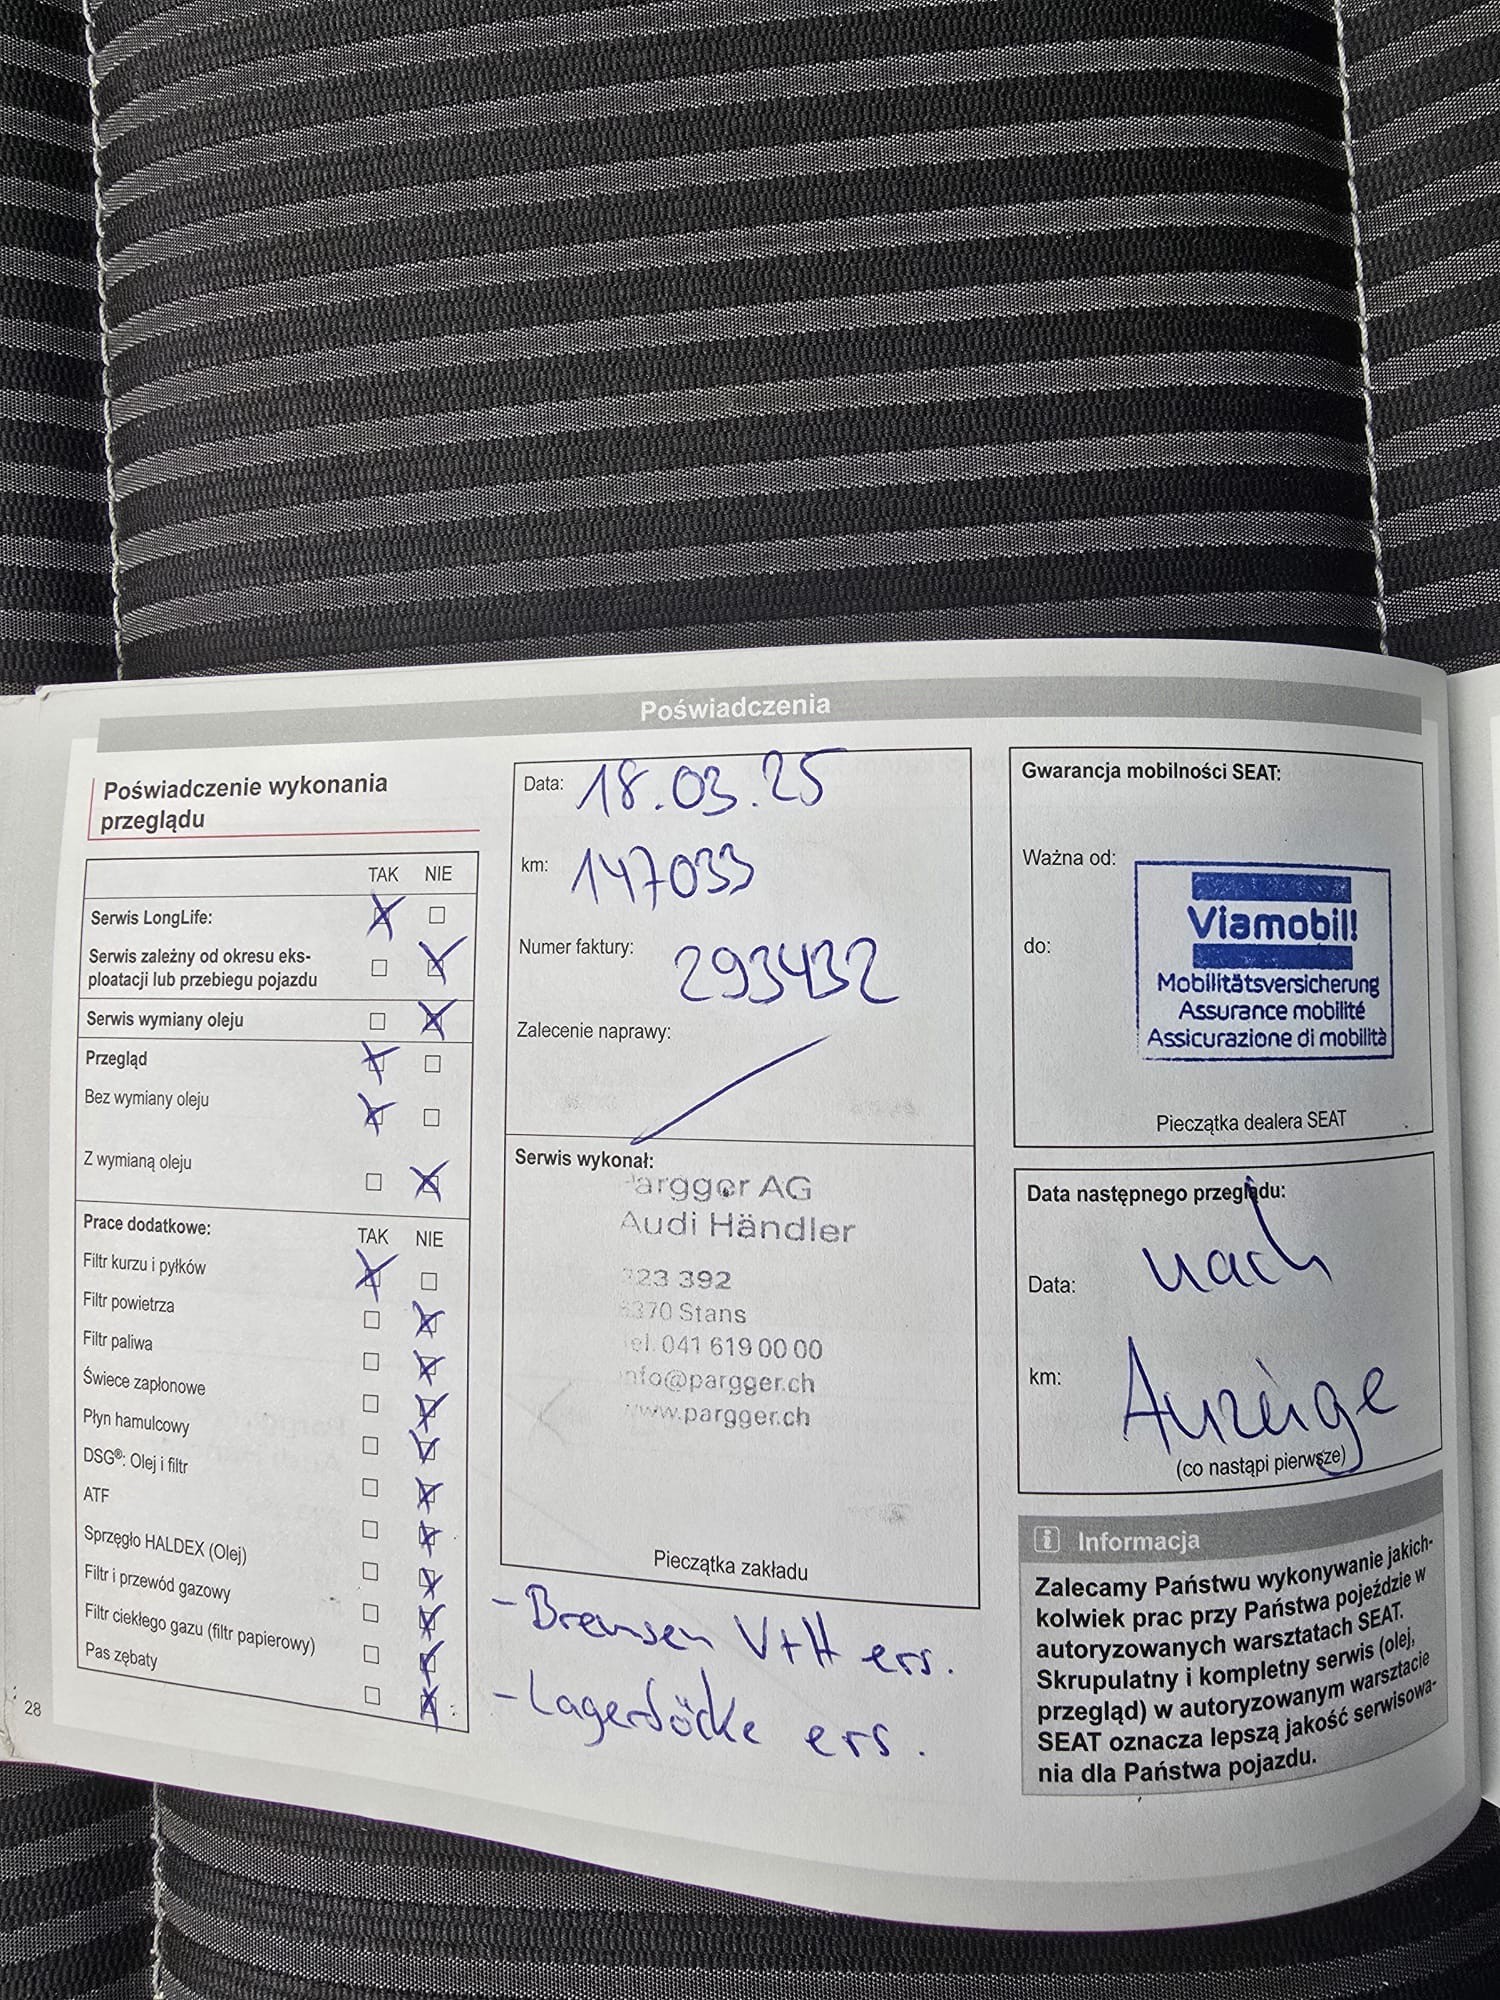 Poświadczenia
Poświadczenie wykonania
przeglądu
TAK NIE
Serwis LongLife:
Serwis zależny od okresu eks-
ploatacji lub przebiegu pojazdu
Serwis wymiany oleju
Przegląd
Bez wymiany oleju
Z wymianą oleju
Prace dodatkowe: TAK NIE
Filtr kurzu i pyłków
Filtr powietrza
Filtr paliwa
Świece zapłonowe
Płyn hamulcowy
DSG®: Olej i filtr
ATF
Sprzęgło HALDEX (Olej)
Filtr i przewód gazowy
Filtr ciekłego gazu (filtr papierowy)
Pas zębaty
28
Data: 18.03.25
km: 147033
Numer faktury: 293432
Zalecenie naprawy:
Serwis wykonał:
argger AG
Audi Händler
23 392
370 Stans
el. 041 619 00 00
nfo@pargger.ch
www.pargger.ch
Pieczątka zakładu
- Bremsen V+H ers.
- Lagerböcke ers.
Gwarancja mobilności SEAT:
Ważna od:
do:
Viamobil!
Mobilitätsversicherung
Assurance mobilité
Assicurazione di mobilità
Pieczątka dealera SEAT
Data następnego przeglądu:
Data: nach
km: Anzeige
(co nastąpi pierwsze)
i Informacja
Zalecamy Państwu wykonywanie jakich-
kolwiek prac przy Państwa pojeździe w
autoryzowanych warsztatach SEAT.
Skrupulatny i kompletny serwis (olej,
przegląd) w autoryzowanym warsztacie
SEAT oznacza lepszą jakość serwisowa-
nia dla Państwa pojazdu.